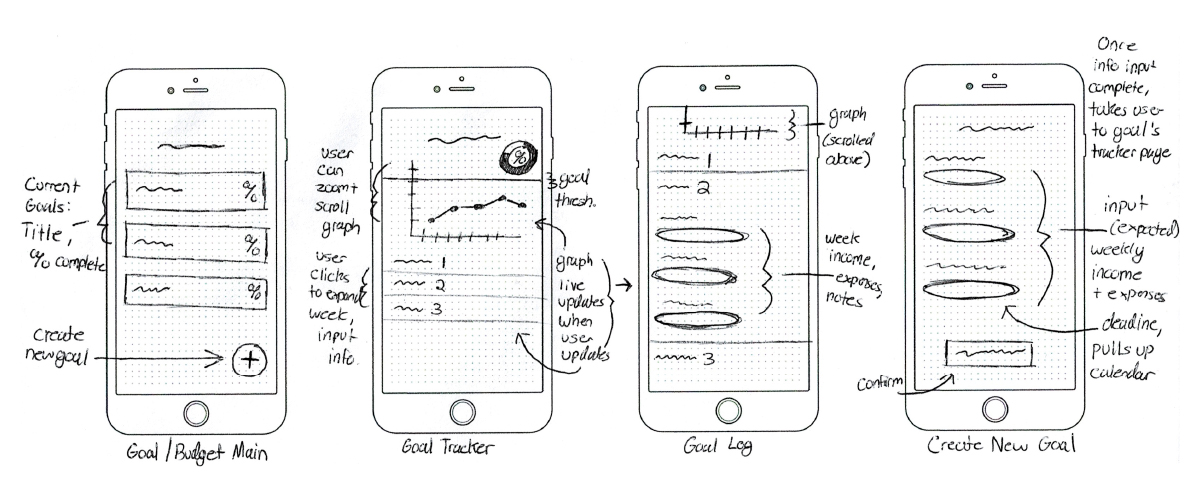 Current
Goals:
Title,
% complete
%
%
%
create
new goal
+
Goal / Budget Main
user
can
zoom +
scroll
graph
%
goal
thresh.
user
clicks
to expand
week,
input
info.
1
2
3
graph
live
updates
when
user
updates
Goal Tracker
graph
(scrolled
above)
1
2
week
income,
expenses,
notes
3
Goal Log
Once
info input
complete,
takes user
to goal's
tracker page
input
(expected)
weekly
income
+ expenses
deadline,
pulls up
calendar
Confirm
Create New Goal